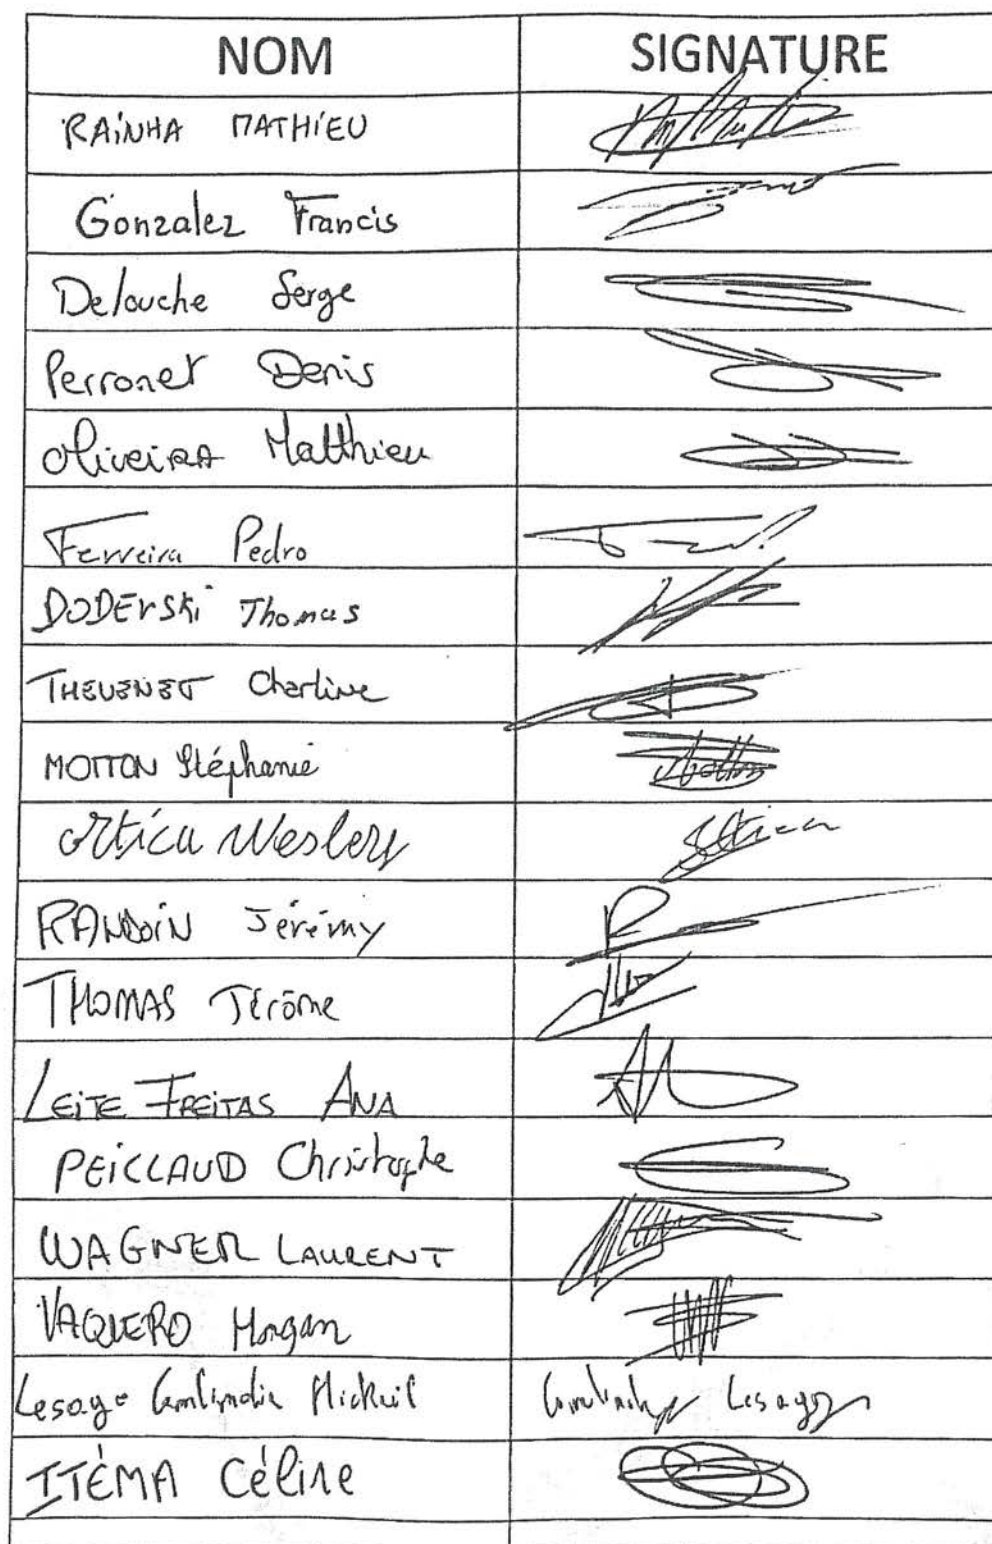 NOM SIGNATURE
RAINHA MATHIEU
Gonzalez Francis
Delouche Serge
Perronet Denis
Oliveira Matthieu
Ferreira Pedro
DODERSKi Thomas
THEVENET Charline
MOTTON Stéphanie
Ortica Wesley
RANDOIN Jérémy
THOMAS Jérôme
LEITE FREITAS ANA
PEICLAUD Christophe
WAGNER LAURENT
VAQUERO Morgan
Lesage Lesage
ITÉMA Céline